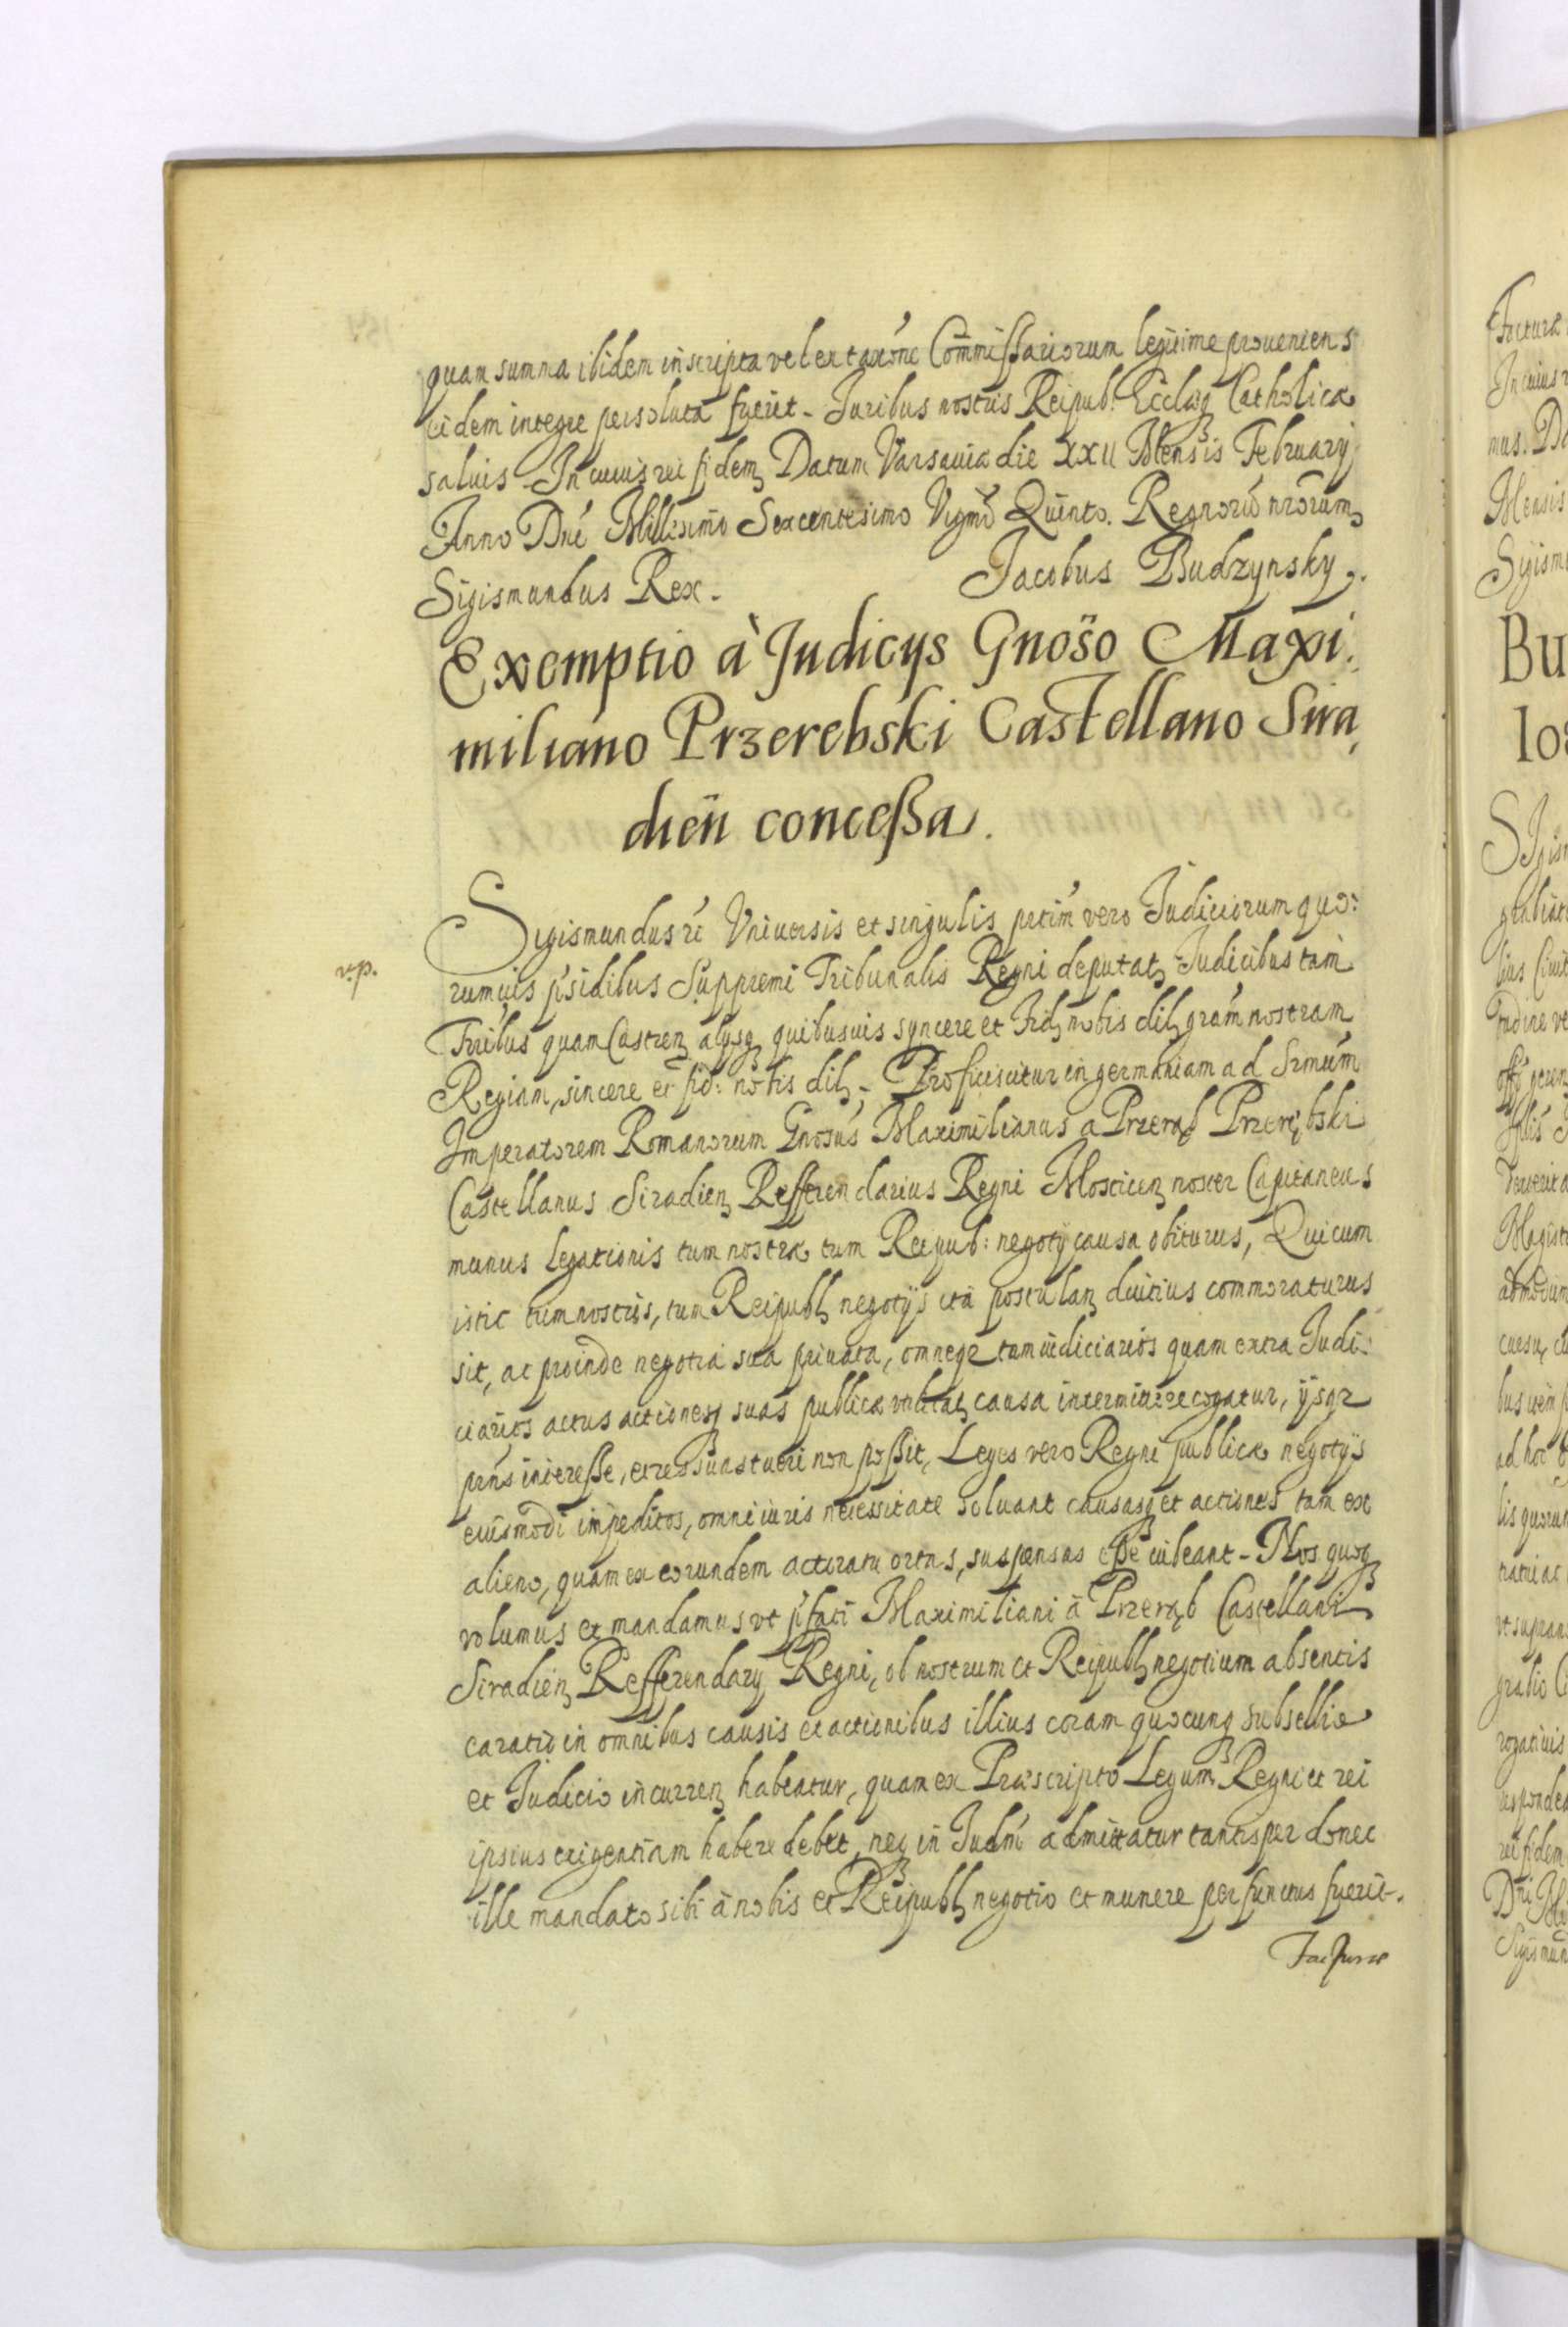 quam summa ibidem inscripta vel ex taxóne Com̄issariorum legitime proueniens
eidem integre persoluta fuerit - Iuribus nostris Reipub: Ecclaeq Catholicæ
saluis - In cuius rei fidem Datum Varsauiæ die XXII Mensis February
Anno Dni Millesimo Sexcentesimo Vigmo Quinto. Regnorū nrorum
Sigismundus Rex. Jacobus Budzynsky.
Exemptio à Judicys Gnoso Maxi.
miliano Przerebski Castellano Sira,
dien̄ concessa.
Sigismundus rc Vniuersis et singulis prtim vero Judiciorum quo:
rumuis psidibus Suppremi Tribunalis Regni deputatz Judicibus tam
Trribus quam Castrenz alysq quibusuis syncere et Fidz nobis dilz gram nostram
Regiam, sincere et fid: nobis dilz - Proficiscitur in germaniam ad Srmum
Imperatorem Romanorum Gnosus Maximilianus a Przeręb Przerębski
Castellanus Siradienz Refferendarius Regni Moscicenz noster Capitaneus
munus legationis tum nostræ tum Reipub: negoty causa obiturus, Qui cum
istic tum nostris, tum Reipublz negotys ita postulanz diutius commoraturus
sit, ac proinde negotia sua priuata, omneqz tam iudiciarios quam extra Judi:
ciarios actus actionesq suas publicæ vtilitatz causa intermittere cogatur, ysqz
prns interesse, et res suas tueri non possit, Leges vero Regni publicæ negotys
eiusmodi impeditos, omni iuris necessitate soluant causasq et actiones tam ex
alieno, quam ex eorundem actoratu ortas, suspensas esse iubeant - Nos quoq
volumus et mandamus vt pfati Maximiliani à Przeręb Castellani
Siradienz Refferendary Regni, ob nostrum et Reipublz negotium absentis
ea ratio in omnibus causis et actionibus illius coram quocunq subsellio
et Judicio incurrenz habeatur, quam ex Præscripto Legum Regni et rei
ipsius exigentiam habere debet, neq in Judm admittatur tantisper donec
ille mandato sibi à nobis et Reipublz negotio et munere perfunctus fuerit-.
Facturæ